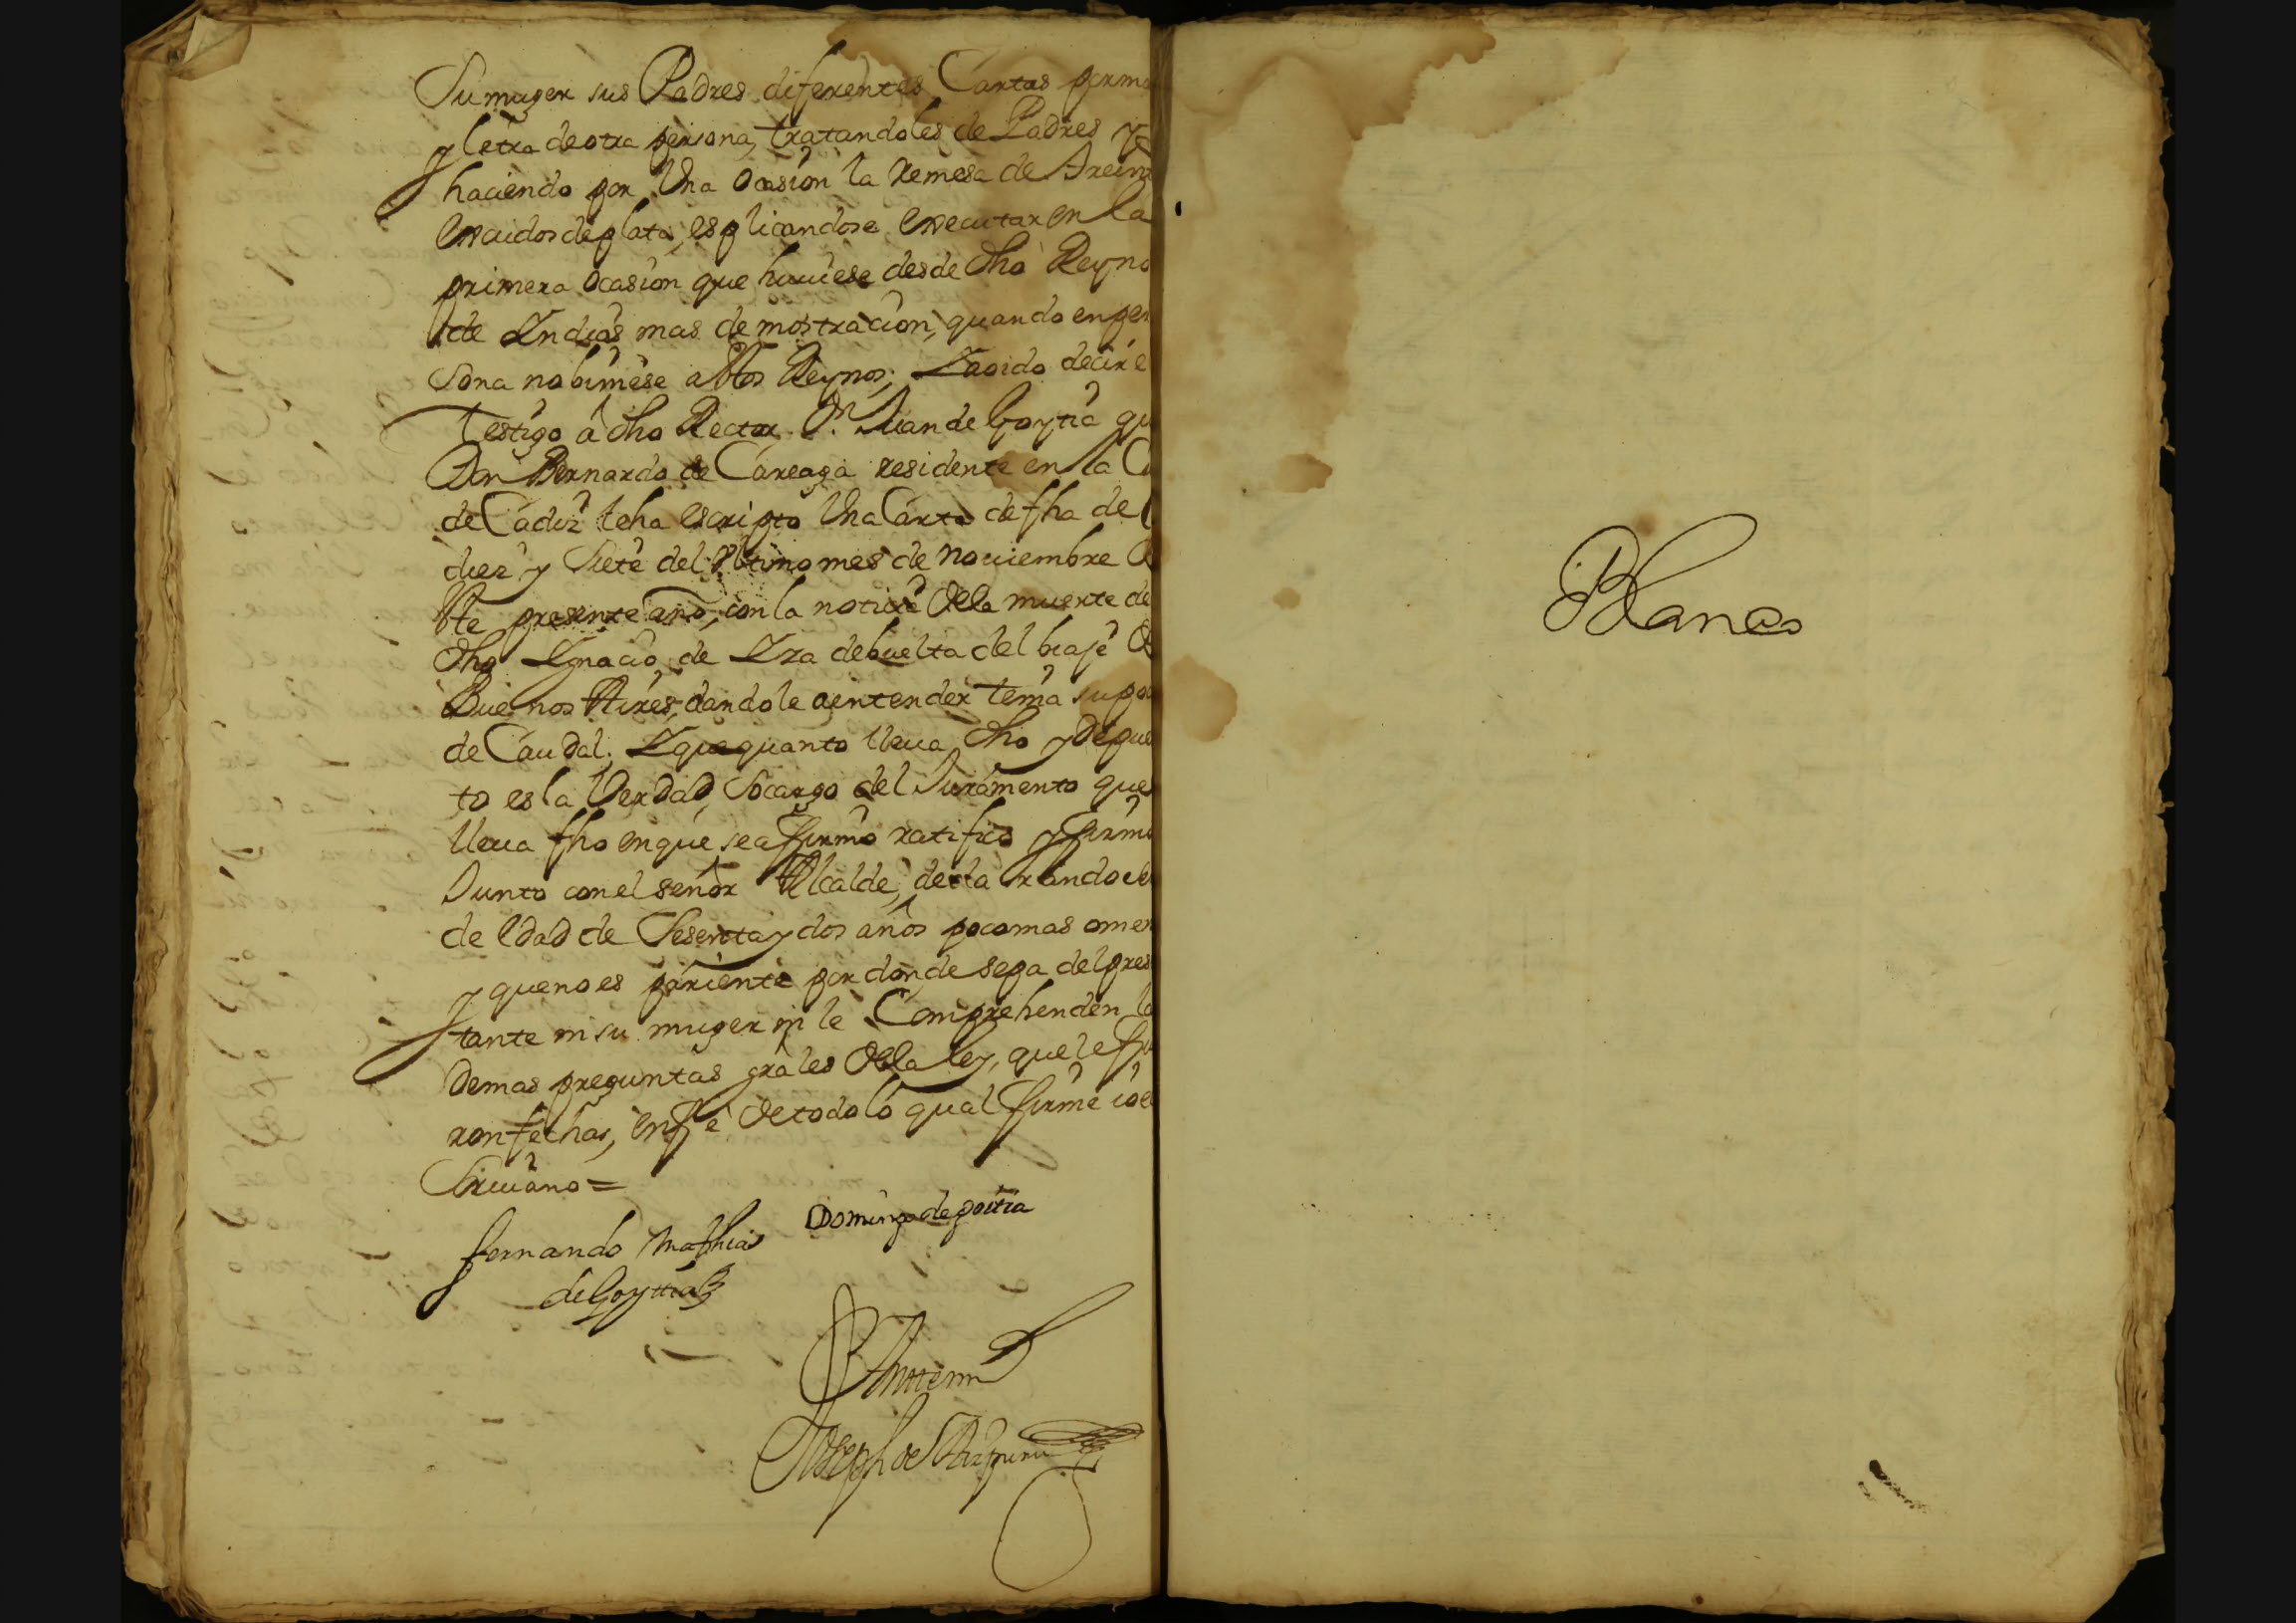 Su muger sus Padres diferentes Cartas por ma
y letra de otra persona, tratandoles de Padres y
haciendo por Una Ocasion la Remesa de treinta
escudos de plata, esplicandose executar en la
primera Ocasion que huuiese desde dho Reyno
de Yndias mas demostracion, quando en per
sona no biniese a estos Reynos; Y a oido decir e
testigo â dho Rector Dn. Juan de Goytia qu
Don Bernardo de Careaga residente en la Ci
de Cadiz le ha escripto Una Carta de fha de
diez y Siete del Vltimo mes de Nouiembre de
este presente año, con la noticia de la muerte de
dho Ygnacio de Yza de buelta del biaje de
Buenos Aires, dandole a entender tenia su po
de Caudal; Y que quanto lleua dho y depues
to es la Verdad, Socargo del Juramento que
lleua fho en que se affirmo ratifico y firmo
Junto con el señor Alcalde, declarando se
de edad de Sesenta y dos años poco mas o men
y que no es pariente por donde sepa del pres
tante ni su muger ni le Comprehenden la
Demas preguntas grâles de la ley, que le fu
ron fechas, en fe de todo lo qual firme io e
Scriuano =
Fernando Mathias Domingo de goitia
de Goyttia
Ante mi
Joseph de
Blanco